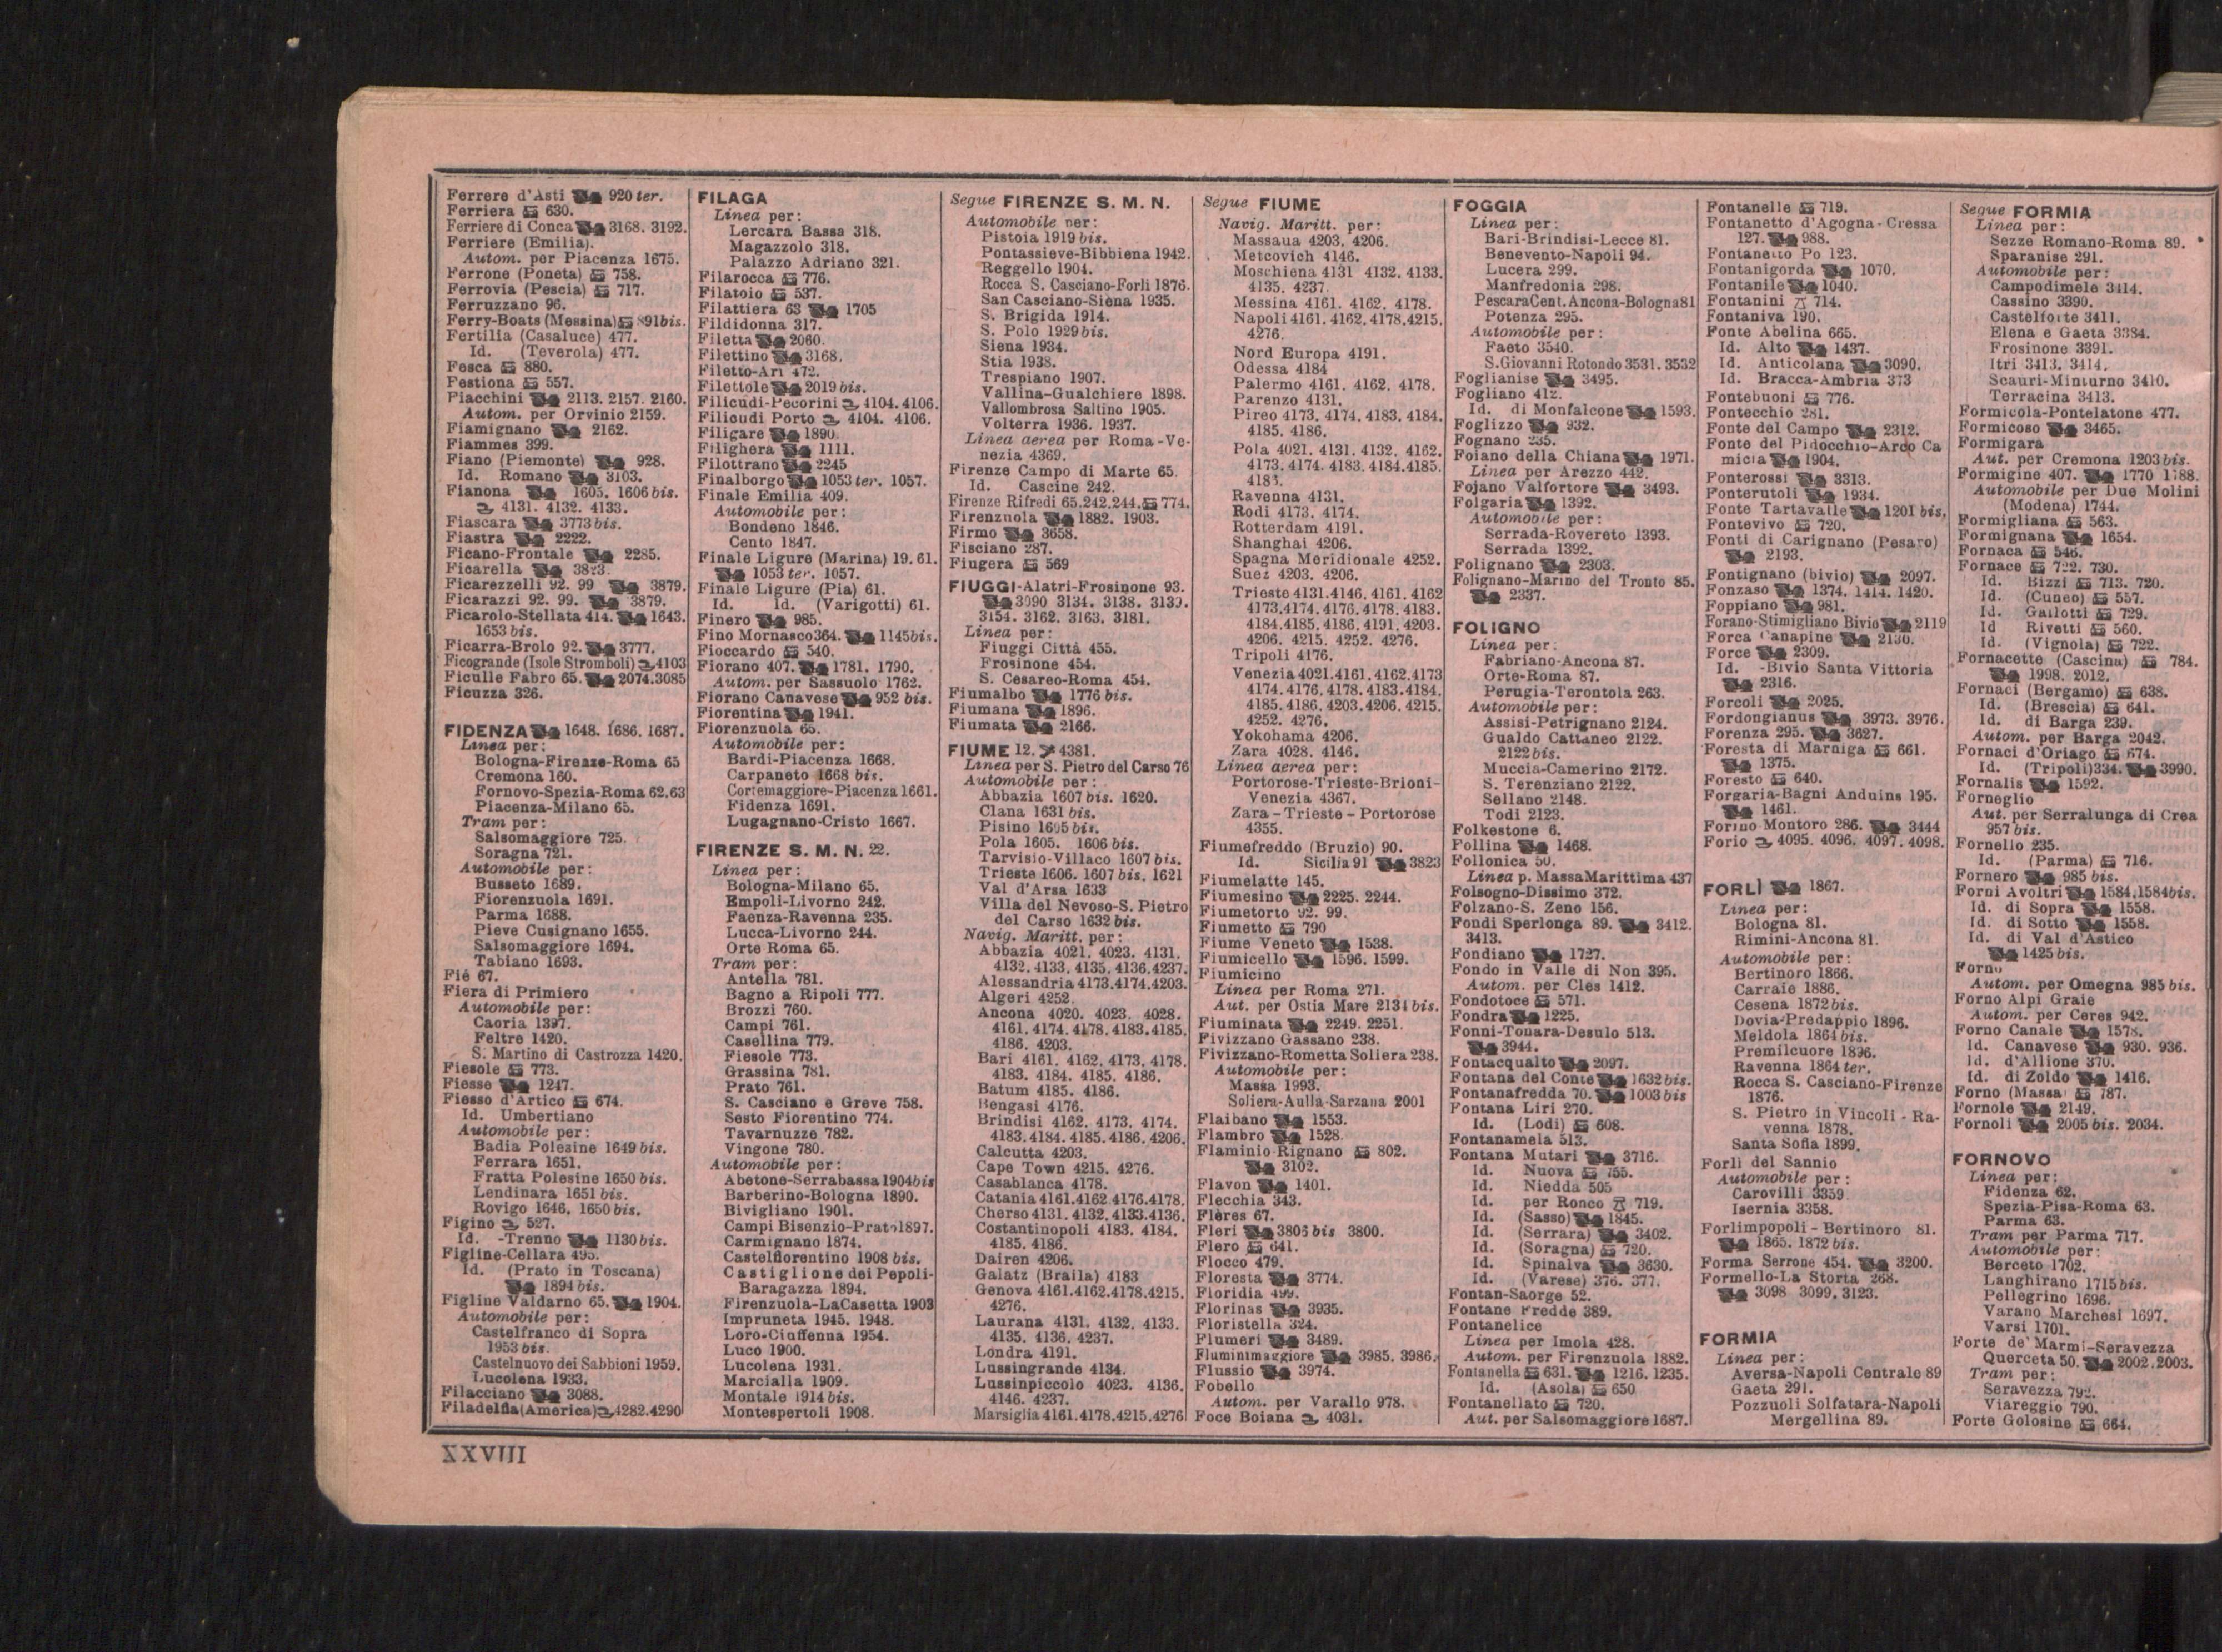 Ferrere d'Asti 920 ter.
Ferriera 630.
Ferriere di Conca 3168. 3192.
Ferriere (Emilia).
Autom. per Piacenza 1675.
Ferrone (Poneta) 758.
Ferrovia (Pescia) 717.
Ferruzzano 96.
Ferry-Boats (Messina) 891bis.
Fertilia (Casaluce) 477.
Id. (Teverola) 477.
Fesca 880.
Festiona 557.
Fiacchini 2113. 2157. 2160.
Autom. per Orvinio 2159.
Fiamignano 2162.
Fiammes 399.
Fiano (Piemonte) 928.
Id. Romano 3103.
Fianona 1605. 1606 bis.
4131. 4132. 4133.
Fiascara 3773 bis.
Fiastra 2222.
Ficano-Frontale 2285.
Ficarella 3823.
Ficarezzelli 92. 99 3879.
Ficarazzi 92. 99. 3879.
Ficarolo-Stellata 414. 1643.
1653 bis.
Ficarra-Brolo 92. 3777.
Ficogrande (Isole Stromboli) 4103
Ficulle Fabro 65. 2074.3085
Ficuzza 326.
FIDENZA 1648. 1686. 1687.
Linea per:
Bologna-Firenze-Roma 65
Cremona 160.
Fornovo-Spezia-Roma 62.63
Piacenza-Milano 65.
Tram per:
Salsomaggiore 725.
Soragna 721.
Automobile per:
Busseto 1689.
Fiorenzuola 1691.
Parma 1688.
Pieve Cusignano 1655.
Salsomaggiore 1694.
Tabiano 1693.
Fié 67.
Fiera di Primiero
Automobile per:
Caoria 1397.
Feltre 1420.
S. Martino di Castrozza 1420.
Fiesole 773.
Fiesse 1247.
Fiesso d'Artico 674.
Id. Umbertiano
Automobile per:
Badia Polesine 1649 bis.
Ferrara 1651.
Fratta Polesine 1650 bis.
Lendinara 1651 bis.
Rovigo 1646. 1650 bis.
Figino 527.
Id. -Trenno 1130 bis.
Figline-Cellara 495.
Id. (Prato in Toscana)
1894 bis.
Figline Valdarno 65. 1904.
Automobile per:
Castelfranco di Sopra
1953 bis.
Castelnuovo dei Sabbioni 1959.
Lucolena 1933.
Filacciano 3088.
Filadelfia (America) 4282.4290
FILAGA
Linea per:
Lercara Bassa 318.
Magazzolo 318.
Palazzo Adriano 321.
Filarocca 776.
Filatoio 537.
Filattiera 63 1705
Fildidonna 317.
Filetta 2060.
Filettino 3168.
Filetto-Ari 472.
Filettole 2019 bis.
Filicudi-Pecorini 4104. 4106.
Filicudi Porto 4104. 4106.
Filigare 1890.
Filighera 1111.
Filottrano 2245
Finalborgo 1053 ter. 1057.
Finale Emilia 409.
Automobile per:
Bondeno 1846.
Cento 1847.
Finale Ligure (Marina) 19. 61.
1053 ter. 1057.
Finale Ligure (Pia) 61.
Id. Id. (Varigotti) 61.
Finero 985.
Fino Mornasco 364. 1145bis.
Fioccardo 540.
Fiorano 407. 1781. 1790.
Autom. per Sassuolo 1762.
Fiorano Canavese 952 bis.
Fiorentina 1941.
Fiorenzuola 65.
Automobile per:
Bardi-Piacenza 1668.
Carpaneto 1668 bis.
Cortemaggiore-Piacenza 1661.
Fidenza 1691.
Lugagnano-Cristo 1667.
FIRENZE S. M. N. 22.
Linea per:
Bologna-Milano 65.
Empoli-Livorno 242.
Faenza-Ravenna 235.
Lucca-Livorno 244.
Orte Roma 65.
Tram per:
Antella 781.
Bagno a Ripoli 777.
Brozzi 760.
Campi 761.
Casellina 779.
Fiesole 773.
Grassina 781.
Prato 761.
S. Casciano e Greve 758.
Sesto Fiorentino 774.
Tavarnuzze 782.
Vingone 780.
Automobile per:
Abetone-Serrabassa 1904bis
Barberino-Bologna 1890.
Bivigliano 1901.
Campi Bisenzio-Prato 1897.
Carmignano 1874.
Castelfiorentino 1908 bis.
Castiglione dei Pepoli-
Baragazza 1894.
Firenzuola-LaCasetta 1903
Impruneta 1945. 1948.
Loro-Ciuffenna 1954.
Luco 1900.
Lucolena 1931.
Marcialla 1909.
Montale 1914 bis.
Montespertoli 1908.
Segue FIRENZE S. M. N.
Automobile per:
Pistoia 1919 bis.
Pontassieve-Bibbiena 1942.
Reggello 1904.
Rocca S. Casciano-Forlì 1876.
San Casciano-Siena 1935.
S. Brigida 1914.
S. Polo 1929 bis.
Siena 1934.
Stia 1938.
Trespiano 1907.
Vallina-Gualchiere 1898.
Vallombrosa Saltino 1905.
Volterra 1936. 1937.
Linea aerea per Roma-Ve-
nezia 4369.
Firenze Campo di Marte 65.
Id. Cascine 242.
Firenze Rifredi 65.242.244. 774.
Firenzuola 1882. 1903.
Firmo 3658.
Fisciano 287.
Fiugera 569
FIUGGI-Alatri-Frosinone 93.
3090 3134. 3138. 3139.
3154. 3162. 3163. 3181.
Linea per:
Fiuggi Città 455.
Frosinone 454.
S. Cesareo-Roma 454.
Fiumalbo 1776 bis.
Fiumana 1896.
Fiumata 2166.
FIUME 12. 4381.
Linea per S. Pietro del Carso 76
Automobile per:
Abbazia 1607 bis. 1620.
Clana 1631 bis.
Pisino 1605 bis.
Pola 1605. 1606 bis.
Tarvisio-Villaco 1607 bis.
Trieste 1606. 1607 bis. 1621
Val d'Arsa 1633
Villa del Nevoso-S. Pietro
del Carso 1632 bis.
Navig. Maritt. per:
Abbazia 4021. 4023. 4131.
4132. 4133. 4135. 4136.4237.
Alessandria 4173.4174.4203.
Algeri 4252.
Ancona 4020. 4023. 4028.
4161. 4174. 4178. 4183.4185.
4186. 4203.
Bari 4161. 4162. 4173. 4178.
4183. 4184. 4185. 4186.
Batum 4185. 4186.
Bengasi 4176.
Brindisi 4162. 4173. 4174.
4183. 4184. 4185. 4186. 4206.
Calcutta 4203.
Cape Town 4215. 4276.
Casablanca 4178.
Catania 4161.4162.4176.4178.
Cherso 4131. 4132. 4133.4136.
Costantinopoli 4183. 4184.
4185. 4186.
Dairen 4206.
Galatz (Braila) 4183
Genova 4161.4162.4178.4215.
4276.
Laurana 4131. 4132. 4133.
4135. 4136. 4237.
Londra 4191.
Lussingrande 4134.
Lussinpiccolo 4023. 4136.
4146. 4237.
Marsiglia 4161.4178.4215.4276
Segue FIUME
Navig. Maritt. per:
Massaua 4203. 4206.
Metcovich 4146.
Moschiena 4131 4132. 4133.
4135. 4237.
Messina 4161. 4162. 4178.
Napoli 4161. 4162.4178.4215.
4276.
Nord Europa 4191.
Odessa 4184
Palermo 4161. 4162. 4178.
Parenzo 4131.
Pireo 4173. 4174. 4183. 4184.
4185. 4186.
Pola 4021. 4131. 4132. 4162.
4173. 4174. 4183. 4184.4185.
Ravenna 4131.
Rodi 4173. 4174.
Rotterdam 4191.
Shanghai 4206.
Spagna Meridionale 4252.
Suez 4203. 4206.
Trieste 4131.4146. 4161. 4162
4173.4174. 4176. 4178. 4183.
4184.4185. 4186. 4191. 4203.
4206. 4215. 4252. 4276.
Tripoli 4176.
Venezia 4021.4161. 4162.4173
4174. 4176. 4178. 4183.4184.
4185. 4186. 4203. 4206. 4215.
4252. 4276.
Yokohama 4206.
Zara 4028. 4146.
Linea aerea per:
Portorose-Trieste-Brioni-
Venezia 4367.
Zara - Trieste - Portorose
4355.
Fiumefreddo (Bruzio) 90.
Id. Sicilia 91 3823
Fiumelatte 145.
Fiumesino 2225. 2244.
Fiumetorto 92. 99.
Fiumetto 790
Fiume Veneto 1538.
Fiumicello 1596. 1599.
Fiumicino
Linea per Roma 271.
Aut. per Ostia Mare 2131 bis.
Fiuminata 2249. 2251.
Fivizzano Gassano 238.
Fivizzano-Rometta Soliera 238.
Automobile per:
Massa 1993.
Soliera-Aulla-Sarzana 2001
Flaibano 1553.
Flambro 1528.
Flaminio Rignano 802.
3102.
Flavon 1401.
Flecchia 343.
Flères 67.
Fleri 3806 bis 3800.
Flero 641.
Flocco 479.
Floresta 3774.
Floridia 499.
Florinas 3935.
Floristella 324.
Flumeri 3489.
Fluminimaggiore 3985. 3986.
Flussio 3974.
Fobello
Autom. per Varallo 978.
Foce Boiana 4031.
FOGGIA
Linea per:
Bari-Brindisi-Lecce 81.
Benevento-Napoli 94.
Lucera 299.
Manfredonia 298.
PescaraCent.Ancona-Bologna81
Potenza 295.
Automobile per:
Faeto 3540.
S.Giovanni Rotondo 3531. 3532
Foglianise 3495.
Fogliano 412.
Id. di Monfalcone 1593.
Foglizzo 932.
Fognano 235.
Foiano della Chiana 1971.
Linea per Arezzo 442.
Fojano Valfortore 3493.
Folgaria 1392.
Automobile per:
Serrada-Rovereto 1393.
Serrada 1392.
Folignano 2303.
Folignano-Marino del Tronto 85.
2337.
FOLIGNO
Linea per:
Fabriano-Ancona 87.
Orte-Roma 87.
Perugia-Terontola 263.
Automobile per:
Assisi-Petrignano 2124.
Gualdo Cattaneo 2122.
2122 bis.
Muccia-Camerino 2172.
S. Terenziano 2122.
Sellano 2148.
Todi 2123.
Folkestone 6.
Follina 1468.
Follonica 50.
Linea p. MassaMarittima 437
Folsogno-Dissimo 372.
Folzano-S. Zeno 156.
Fondi Sperlonga 89. 3412.
3413.
Fondiano 1727.
Fondo in Valle di Non 395.
Autom. per Cles 1412.
Fondotoce 571.
Fondra 1225.
Fonni-Tonara-Desulo 513.
3944.
Fontacqualto 2097.
Fontana del Conte 1632 bis.
Fontanafredda 70. 1003 bis
Fontana Liri 270.
Id. (Lodi) 608.
Fontanamela 513.
Fontana Mutari 3716.
Id. Nuova 755.
Id. Niedda 505
Id. per Ronco 719.
Id. (Sasso) 1845.
Id. (Serrara) 3402.
Id. (Soragna) 720.
Id. Spinalva 3630.
Id. (Varese) 376. 377.
Fontan-Saorge 52.
Fontane Fredde 389.
Fontanelice
Linea per Imola 428.
Autom. per Firenzuola 1882.
Fontanella 631. 1216. 1235.
Id. (Asola) 650
Fontanellato 720.
Aut. per Salsomaggiore 1687.
Fontanelle 719.
Fontanetto d'Agogna-Cressa
127. 988.
Fontanetto Po 123.
Fontanigorda 1070.
Fontanile 1040.
Fontanini 714.
Fontaniva 190.
Fonte Abelina 665.
Id. Alto 1437.
Id. Anticolana 3090.
Id. Bracca-Ambria 373
Fontebuoni 776.
Fontecchio 281.
Fonte del Campo 2312.
Fonte del Pidocchio-Arco Ca
micia 1904.
Fonterossi 3313.
Fonterutoli 1934.
Fonte Tartavalle 1201 bis.
Fontevivo 720.
Fonti di Carignano (Pesaro)
2193.
Fontignano (bivio) 2097.
Fonzaso 1374. 1414. 1420.
Foppiano 981.
Forano-Stimigliano Bivio 2119
Forca Canapine 2130.
Force 2309.
Id. -Bivio Santa Vittoria
2316.
Forcoli 2025.
Fordongianus 3973. 3976.
Forenza 295. 3627.
Foresta di Marniga 661.
1375.
Foresto 640.
Forgaria-Bagni Anduins 195.
1461.
Forino Montoro 286. 3444
Forio 4095. 4096. 4097. 4098.
FORLÌ 1867.
Linea per:
Bologna 81.
Rimini-Ancona 81.
Automobile per:
Bertinoro 1866.
Carraie 1886.
Cesena 1872 bis.
Dovia-Predappio 1896.
Meldola 1864 bis.
Premilcuore 1896.
Ravenna 1864 ter.
Rocca S. Casciano-Firenze
1876.
S. Pietro in Vincoli - Ra-
venna 1878.
Santa Sofia 1899.
Forlì del Sannio
Automobile per:
Carovilli 3359.
Isernia 3358.
Forlimpopoli - Bertinoro 81.
1865. 1872 bis.
Forma Serrone 454. 3200.
Formello-La Storta 268.
3098 3099. 3123.
FORMIA
Linea per:
Aversa-Napoli Centrale 89
Gaeta 291.
Pozzuoli Solfatara-Napoli
Mergellina 89.
Segue FORMIA
Linea per:
Sezze Romano-Roma 89.
Sparanise 291.
Automobile per:
Campodimele 3414.
Cassino 3390.
Castelforte 3411.
Elena e Gaeta 3384.
Frosinone 3391.
Itri 3413. 3414.
Scauri-Minturno 3410.
Terracina 3413.
Formicola-Pontelatone 477.
Formicoso 3465.
Formigara
Aut. per Cremona 1203 bis.
Formigine 407. 1770
Automobile per Due Molini
(Modena) 1744.
Formigliana 563.
Formignana 1654.
Fornaca 546.
Fornace 722. 730.
Id. Bizzi 713. 720.
Id. (Cuneo) 557.
Id. Gallotti 729.
Id Rivetti 560.
Id. (Vignola) 722.
Fornacette (Cascina) 784.
1998. 2012.
Fornaci (Bergamo) 638.
Id. (Brescia) 641.
Id. di Barga 239.
Autom. per Barga 2042.
Fornaci d'Oriago 674.
Id. (Tripoli) 334. 3990.
Fornalis 1592.
Forneglio
Aut. per Serralunga di Crea
957 bis.
Fornello 235.
Id. (Parma) 716.
Fornero 985 bis.
Forni Avoltri 1584.1584bis.
Id. di Sopra 1558.
Id. di Sotto 1558.
Id. di Val d'Astico
1425 bis.
Forno
Autom. per Omegna 985 bis.
Forno Alpi Graie
Autom. per Ceres 942.
Forno Canale 1578.
Id. Canavese 930. 936.
Id. d'Allione 370.
Id. di Zoldo 1416.
Forno (Massa) 787.
Fornole 2149.
Fornoli 2005 bis. 2034.
FORNOVO
Linea per:
Fidenza 62.
Spezia-Pisa-Roma 63.
Parma 63.
Tram per Parma 717.
Automobile per:
Berceto 1702.
Langhirano 1715 bis.
Pellegrino 1696.
Varano Marchesi 1697.
Varsi 1701.
Forte de' Marmi-Seravezza
Querceta 50. 2002.2003.
Tram per:
Seravezza 792.
Viareggio 790.
Forte Golosine 664.
XXVIII